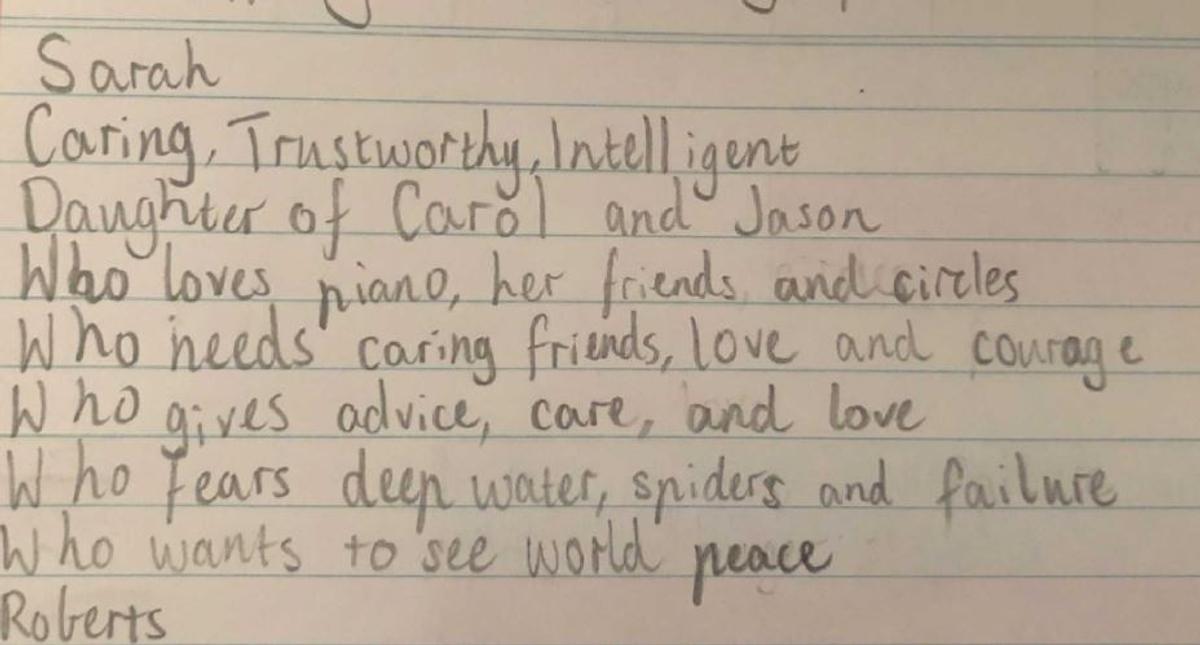 Sarah
Caring, Trustworthy, Intelligent
Daughter of Carol and Jason
Who loves piano, her friends and circles
Who needs caring friends, love and courage
Who gives advice, care, and love
Who fears deep water, spiders and failure
Who wants to see world peace
Roberts